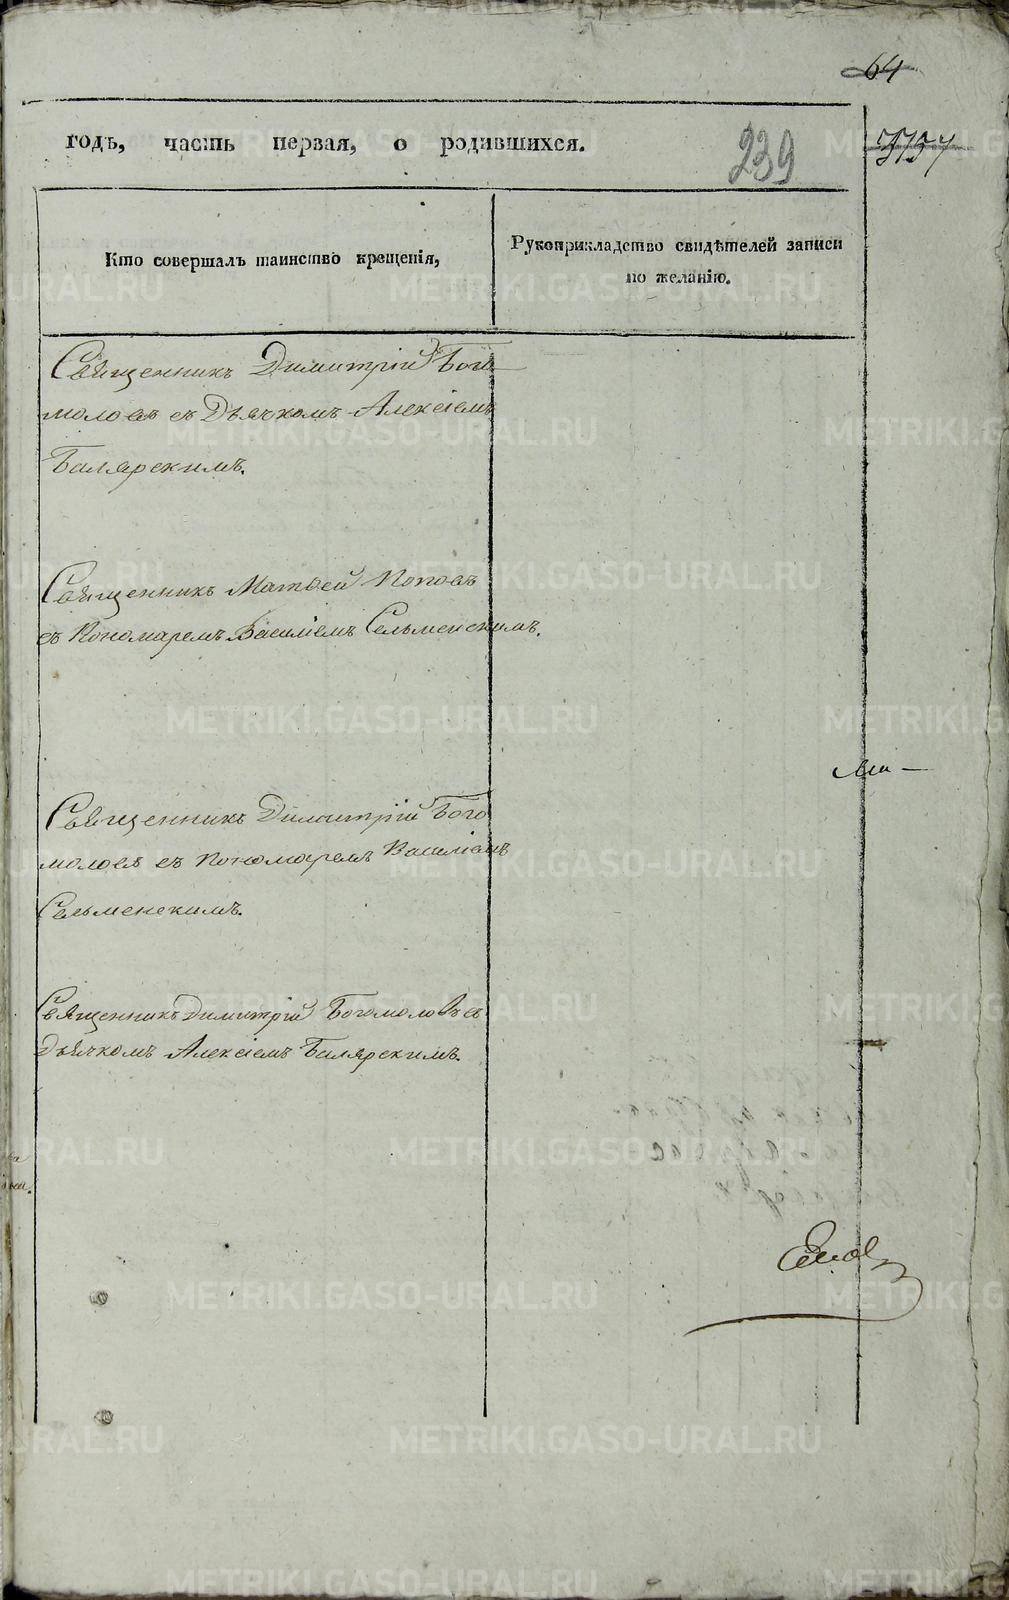 64
годъ, часть первая, о родившихся.
239
Кто совершалъ таинство крещенія,
Рукоприкладство свидѣтелей записи
по желанію.
Священникъ Димитрій Бого
моловъ съ Дьячкомъ Алексіемъ
Балярскимъ.
Священникъ Матвей Поповъ
съ Пономаремъ Василіемъ Сельменскимъ.
Священникъ Димитрій Бого
моловъ съ Пономаремъ Василіемъ
Сельменскимъ.
Священникъ Димитрій Богомоловъ съ
Дьячкомъ Алексіемъ Балярскимъ.
METRIKI.GASO-URAL.RU